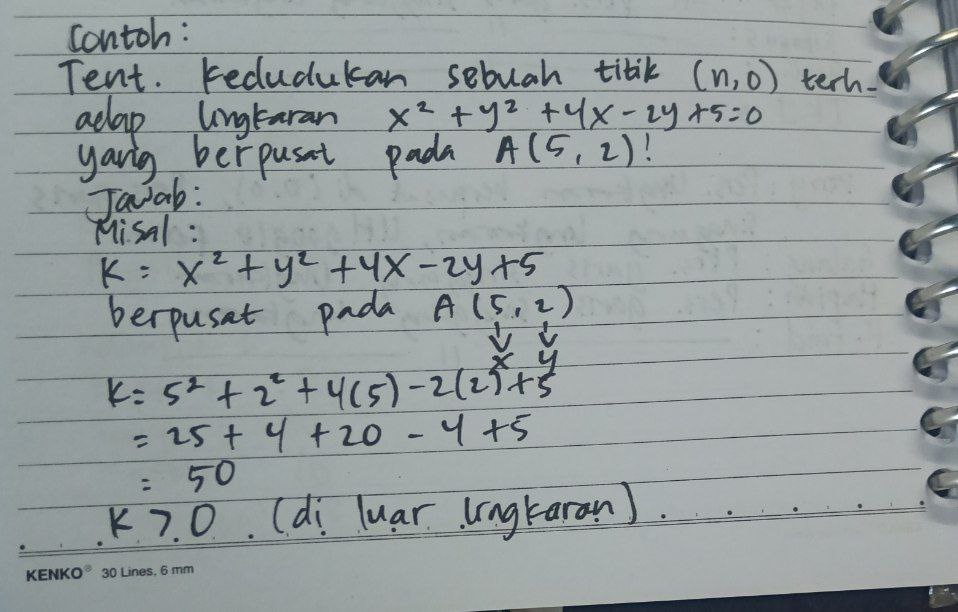 Contoh:
Tent. kedudukan sebuah titik (n,0) terh-
adap lingkaran x² + y² + 4x - 2y +5=0
yang berpusat pada A(5,2)!
Jawab:
Misal:
K = x² + y² + 4x - 2y + 5
berpusat pada A (5,2)
↓ ↓
x y
K= 5² + 2² + 4(5) - 2(2) + 5
= 25 + 4 + 20 - 4 + 5
= 50
K > 0 (di luar lingkaran)
KENKO® 30 Lines, 6 mm